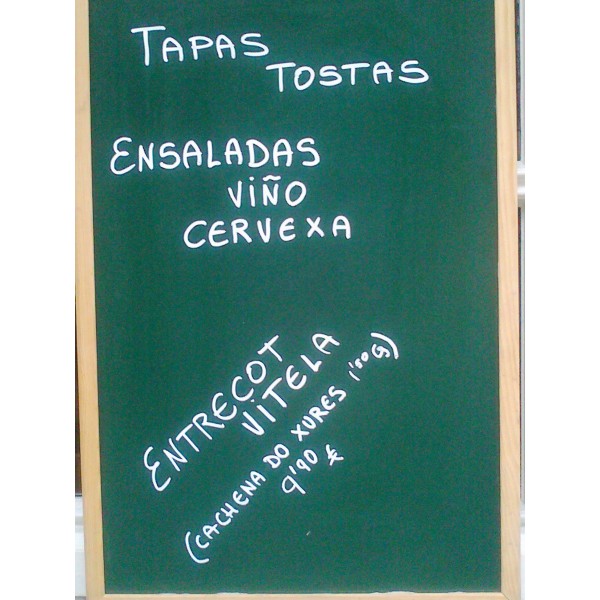 TAPAS
TOSTAS
ENSALADAS
VIÑO
CERVEXA
ENTRECOT
VITELA
(CACHENA DO XURES
9'90 €